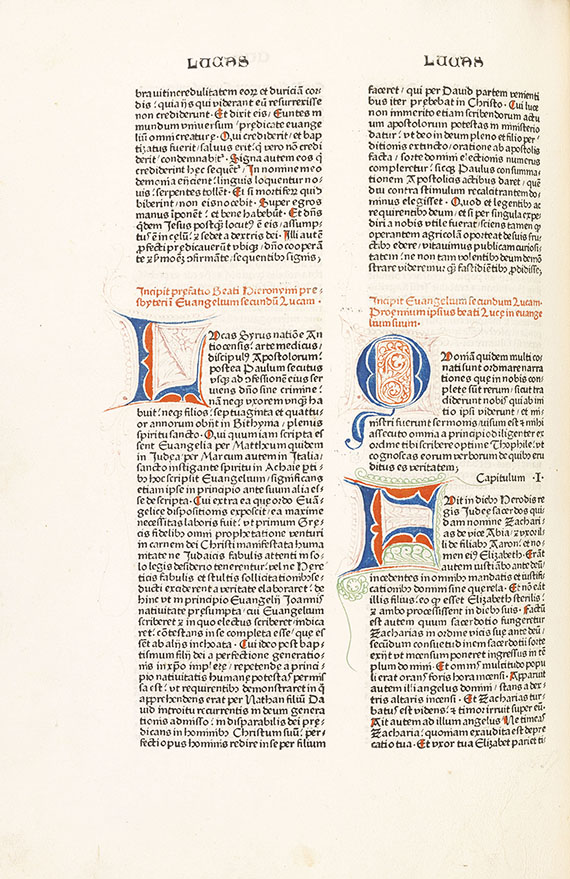 LUCAS
bra vit incredulitatem eorꝝ et duriciā cor⸗
dis: quia ijs qui viderant eū resurrexisse
non crediderunt. Et dixit eis, Euntes in
mundum vniversum, predicate evange
lium omni creature. Qui crediderit, et bap
tizatus fuerit, saluus erit. q̄ vero nō credi
derit, condemnabitʳ. Signa autem eos q̄
crediderint hec sequētʳ. In nomine meo
demonia eijcient. linguis loquentur no⸗
uis. serpentes tollēt. Et si mortiferū quid
biberint, non eis nocebit. Super egros
manus iponēt, et bene habebūt. Et dn̄s
qdem Jesus postqꝫ locutꝰ ē eis, assump⸗
tus ē in celū, & sedet a dextris dei. Illi autē
pfecti predicauerūt vbiqꝫ, dn̄o cooperā
te & smonē ɔfirmāte, sequentibꝰ signis,
Incipit prefatio Beati Hieronymi pre⸗
sbyteri ī Evangelium secundū Lucam.
LVcas Syrus natiōe An
tiocensis, arte medicus,
discipulꝰ Apostolorum,
postea Paulum secutus
vsqꝫ ad ɔfessionē eius ser
viens dn̄o sine crimine.
nā neqꝫ vxorem vnqꝫ ha
buit, neqꝫ filios, septuaginta et quattu⸗
or annorum obijt in Bithynia, plenus
spiritu sancto. Qui quum iam scripta es
sent Evangelia, per Mattheum quidem
in Judea, per Marcum autem in Italia,
sancto instigante spiritu in Achaie pti⸗
bꝰ hoc scripsit Evangelium, significans
etiam ipse in principio ante suum alia es
se descripta. Cui extra ea que ordo Euā⸗
gelice dispositionis exposcit, ea maxime
necessitas laboris fuit, vt primum Gre⸗
cis fidelibꝰ omni prophetatione venturi
in carnem dei Christi manifestata huma
nitate ne Judaicis fabulis attenti in so⸗
lo legis desiderio tenerentur, vel ne Here
ticis fabulis et stultis sollicitationibꝰ se⸗
ducti exciderent a veritate elaboraret. de
hinc vt in principio Evangelij Joannis
nativitate presumpta, cui Evangelium
scriberet & in quo electus scriberet, indica
ret, ɔtestans in se completa esse, que es⸗
sēt ab alijs inchoata. Cui ideo post bap⸗
tismum filij dei a perfectione generatio⸗
nis in xp̄o impletę, repetende a princi⸗
pio nativitatis humane potestas permis
sa est, vt requirentibꝰ demonstraret in q̄
apprehendens erat per Nathan filiū Da
vid introitu recurrentis in deum genera
tionis admisso, indisparabilis dei pre⸗
dicans in hominibꝰ Christum suū, per⸗
fecti opus hominis redire in se per filium
LUCAS
faceret, qui per David patrem venienti
bus iter prebebat in Christo. Cui luce
non immerito etiam scribendorum actu
um apostolorum potestas in ministerio
datur, vt deo in deum pleno et filio per⸗
ditionis extincto, oratione ab apostolis
facta, sorte domini electionis numerus
compleretur, sicqꝫ Paulus consumma⸗
tionem Apostolicis actibus daret, quē
diu contra stimulum recalcitrantem do⸗
minus elegisset. Quod et legentibꝰ ac
requirentibꝰ deum, et si per singula expe⸗
diri a nobis vtile fuerat, sciens tamen q
operantem agricolā oporteat de suis fru⸗
ctibꝰ edere, vitavimus publicam curiosi⸗
tatem, ne non tam volentibꝰ deum demō
strare videremur, qꝫ fastidiētibꝰ, pdidisse;
Incipit Evangelium secundum Lucam.
Proemium ipsius beati Luce in evange
lium suum.
QVoniā quidem multi co⸗
nati sunt ordinare narra
tiones que in nobis com⸗
plete sūt rerum, sicut tra
diderunt nobis qui ab ini
tio ipsi viderunt, et mi⸗
nistri fuerunt sermonis, visum est & mihi
assecuto omnia a principio diligenter ex
ordine tibi scribere optime Thophile, vt
cognoscas eorum verborum de quibꝰ eru
ditus es veritatem;
Capitulum .I.
FVit in diebꝰ Herodis re
gis Judee sacerdos qui⸗
dam nomine Zachari⸗
as de vice Abia, & vxor il
li de filiabꝰ Aaron, et no⸗
men eiꝰ Elizabeth. Erāt
autem iusti ambo ante deū,
incedentes in omnibꝰ mandatis et iustifi⸗
cationibꝰ domini sine querela. Et nō eāt
illis filius, eo qꝫ esset Elizabeth sterilis,
& ambo processissent in diebꝰ suis. Factū
est autem quum sacerdotio fungeretur
Zacharias in ordine vicis sue ante deū,
secūdum consuetudinem sacerdotij sorte
exijt vt incensum poneret ingressus in tē
plum domini. Et omnis multitudo popu
li erat orans foris hora incensi. Apparuit
autem illi angelus domini, stans a dex⸗
tris altaris incensi. Et Zacharias tur⸗
batus est videns, & timor irruit super eū.
Ait autem ad illum angelus, Ne timeas
Zacharia, quoniam exaudita est depre
catio tua. Et vxor tua Elizabet pariet ti⸗